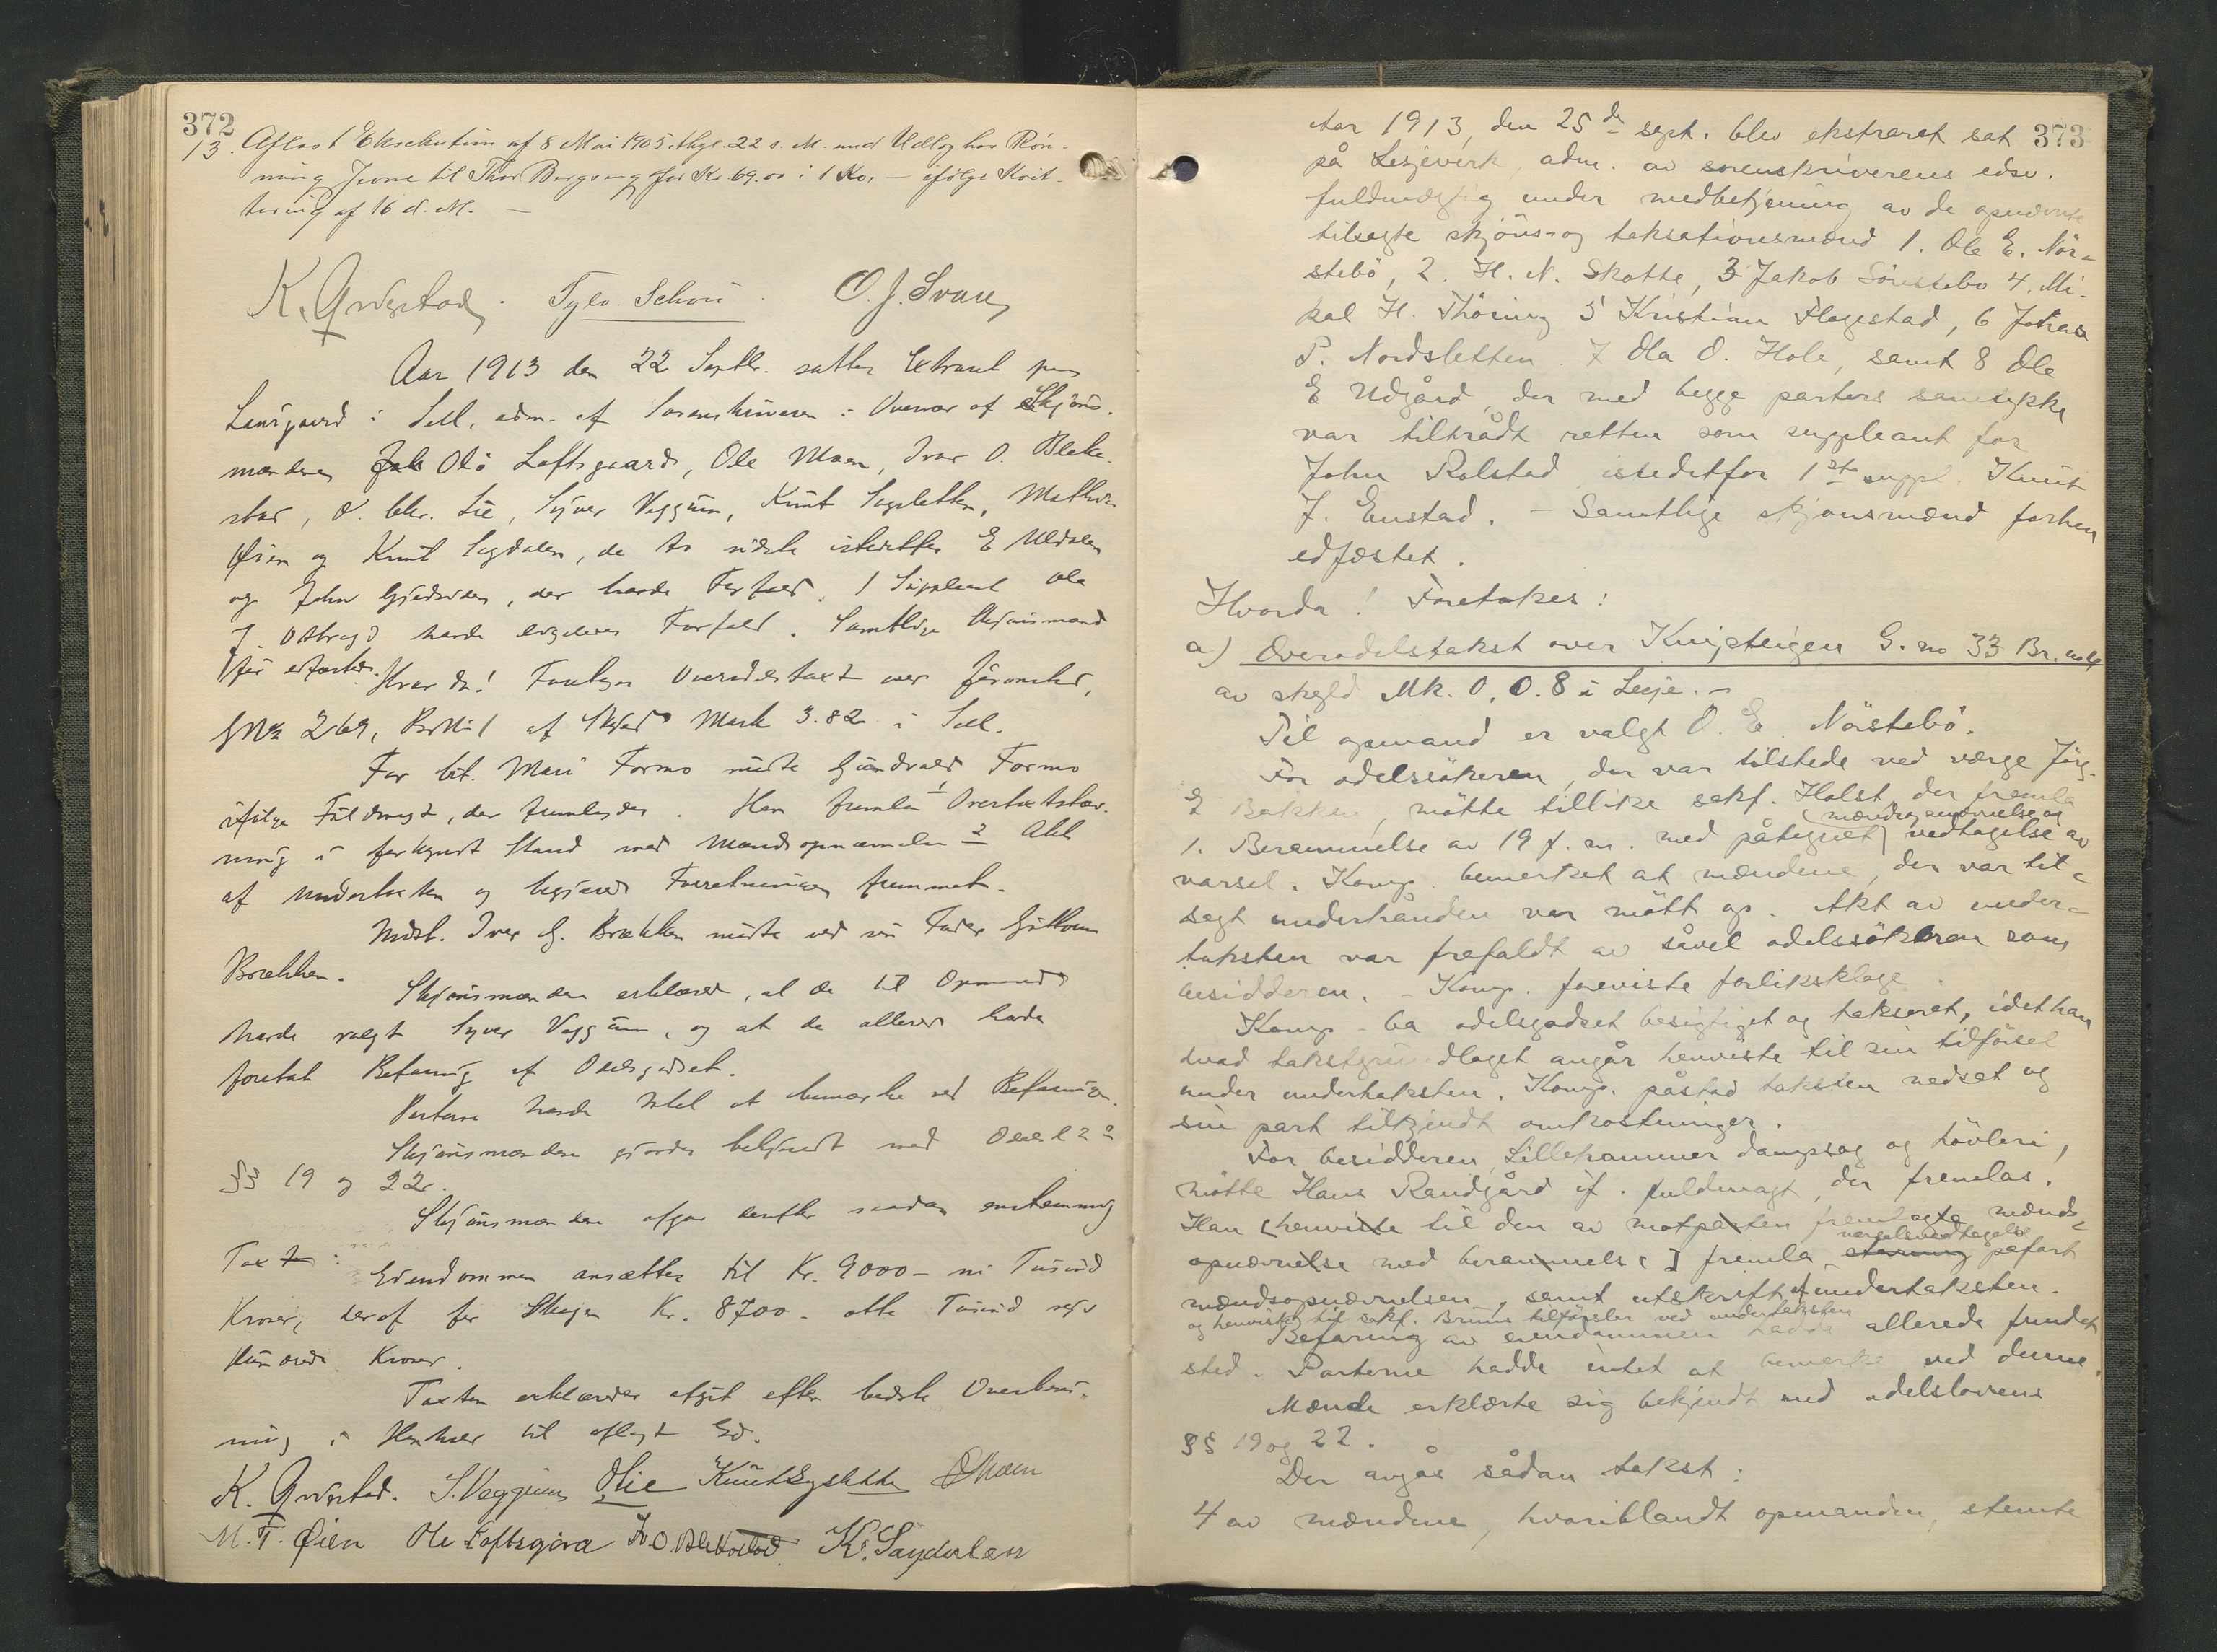 372
13. Aflæst Eksekution af 8 Mai 1905 thgl. 22 s. M. med Udlæg hos Røn-
ning Jevne til Thor Bergseng for Kr. 69.00 i 1 Ko, – ifølge Kvit-
tering af 16 d. M. –
K. Grøstad. Sylv. Schou. O. J. Svare
Aar 1913 den 22 Septbr. sattes Extraret paa
Laurgaard i Sell, adm. af Sorenskriveren i Overvær af Skjøns-
mændene Ole Loftsgaard, Ole Moen, Ivar O. Bleka-
stad, O. Lie, Syver Veggum, Knut Sygeletten, Mathias
Øien og Knut Sagdalen, de to sidste istedetfor E Uldalen
og John, der havde Forfald. 1 Suppleant Ola
J. havde ligeledes Forfald. Samtlige Skjønsmænd
før edfæstede. Hvorda! Foretages Overodelstaxt over,
GNr 269, BrNr 1 af Skyld Mark 3.82 i Sell.
For Cit. Mari Formo mødte Gundvald Formo
ifølge Fuldmagt, der fremlagdes. Han fremla 1 Overtaxtstæv-
ning i forkyndt Stand med Mandsopnævnelse 2 Akt
af Undertaxten og begjæred Forretningen fremmet.
Indst. Iver G. Brækken mødte ved sin Fader Guttorm
Brækken.
Skjønsmændene erklæred, at de til Opmand
havde valgt Syver Veggum, og at de allerede havde
foretat Befaring af Odelsgodset.
Parterne havde Intet at bemærke ved Befaringen.
Skjønsmændene gjordes bekjendt med Odelsl
§§ 19 og 22.
Skjønsmændene afgav derefter saadan enstemmig
Taxt:
Eiendommen ansættes til Kr. 9000 – ni Tusind
Kroner, deraf for Skogen Kr. 8700 – otte Tusind syv
Hundrede Kroner.
Taxten erklæredes afgit efter bedste Overbevis-
ning i Henhold til aflagt Ed.
K. Grøstad. S. Veggum OLie Knut Sygeletten OMoen
M. T. Øien Ole Loftsgård I O Blekastad K. Sagdalen
373
Aar 1913, den 25de sept. blev ekstraret sat
på Lesjeverk, adm. av sorenskriverens edsv.
fuldmægtig under medbetjening av de opnævnte
tilsagte skjøns- og taksationsmænd 1. Ole E. Nör-
stebö, 2. H. N. Skotte, 3 Jakob Sönstebo 4. Mi-
kal H. Thöring 5 Kristian Flagestad, 6 Johan
P. Nordsletten. 7 Ola O. Hole, samt 8 Ole
E Udgård, der med begge parters samtykke
var tiltrådt retten som suppleant for
John Rolstad istedetfor 1ste suppl. Knut
J. Enstad. – Samtlige skjönsmænd forhen
edfæstet.
Hvorda! Foretokes:
a) Overodelstakst over Knipteigen G. no 33 Br. no
av skyld Mk. 0,0.8 i Lesje. –
Til opmand er valgt O. E. Nörstebö.
For odelssökeren, der var tilstede ved værge Jörg.
E Bakken, mötte tillike sakf. Holst, der fremla
1. Berammelse av 19 f. m. med påtegnet (mændsopnævnelse og) vedtagelse av
varsel. Komp. bemerket at mændene, der var til-
sagt underhånden var mött op. Akt av under-
taksten var frafaldt av såvel odelssökeren som
besidderen. – Komp. foreviste forliksklage.
Komp. ba odelsgodset besigtiget og taksert, idet han
hvad takstgrundlaget angår henviste til sin tilförsel
under undertaksten. Komp. påstod taksten nedsat og
sin part tilkjendt omkostninger.
For besidderen, Lillehammer dampsag og hövleri,
mötte Hans Randgård if. fuldmagt, der fremlas.
Han [henviste til den av motparten fremlagte mænds-
opnævnelse med berammelse] fremla varselsvedtagelse påfört
mændsopnævnelsen, samt utskrift af undertaksten.
og henviste til sakf. Bruns tilförsler ved undertaksten
Befaring av eiendommen hadde allerede fundet
sted. Parterne hadde intet at bemerke ved denne.
Mænde erklærte sig bekjendt med odelslovens
§§ 19 og 22.
Der avgås sådan takst:
4 av mændene, hvoriblandt opmanden, stemte